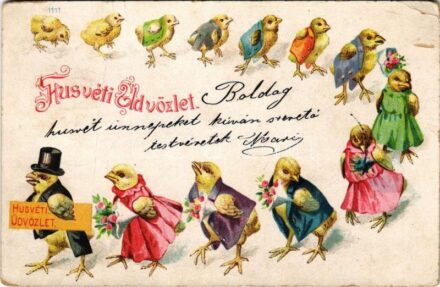 1911
Húsvéti Üdvözlet. Boldog
husvét ünnepeket kíván szerető
testvéretek Mari
HUSVÉTI
ÜDVÖZLET.